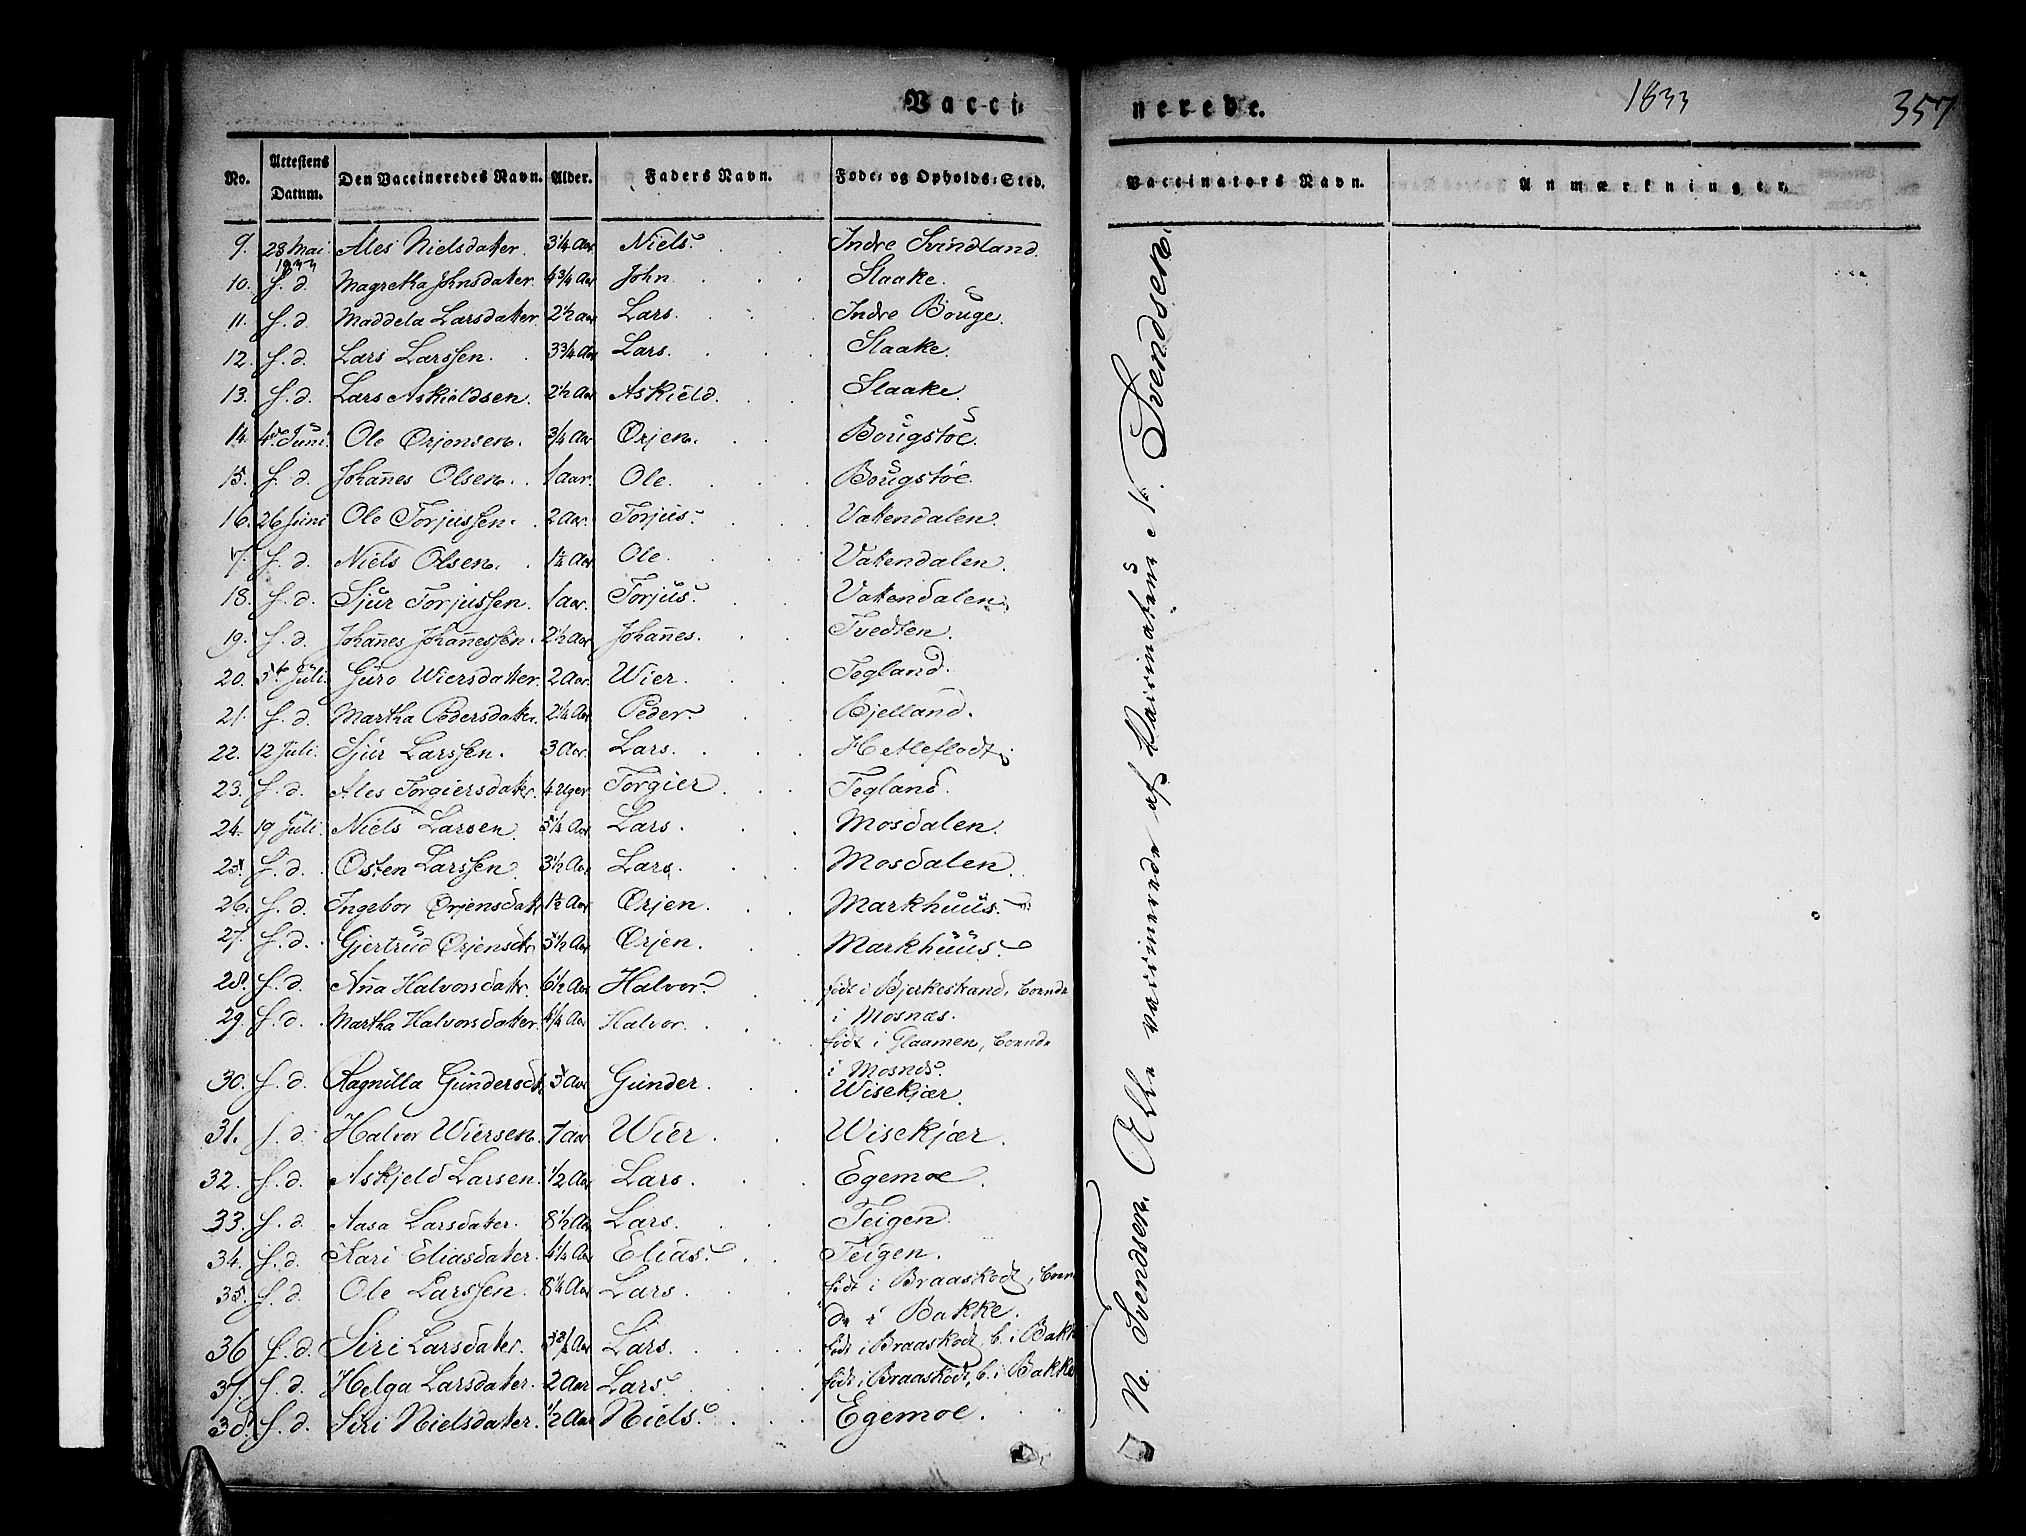 Vacci- nerede. 1833 357
No. Attestens Datum. Den Vaccineredes Navn. Alder. Faders Navn. Føde- og Opholds-Sted. Vaccinators Navn. Anmærkninger.
9. 28 Mai 1833 Ales Nielsdater. 3¼ Aar Niels. Indre Svindland.
10. S. d. Magretha Johnsdater. 4¾ Aar John. Slaake.
11. S. d. Maddela Larsdater. 2½ aar Lars. Indre Bouge.
12. S. d. Lars Larssen. 3¾ Aar Lars. Slaake.
13. S. d. Lars Askieldsen. 2½ Aar Askield. Slaake.
14. 4de Juni. Ole Ørjensen. ¾ Aar Ørjen. Bougstøe.
15. S. d. Johan̄es Olsen. 1 aar. Ole. Bougstøe.
16. 26 Juni Ole Torjussen. 2 Aar. Torjus. Vatendalen.
7. S. d. Niels Olsen. 1¼ Aar Ole. Vatendalen.
18. S. d. Sjur Torjussen. 1 aar. Torjus. Vatendalen.
19. S. d. Johan̄es Johan̄essen. 2½ Aar Johan̄es. Tvedten.
20. 5te Juli. Guro Wiersdatter. 2 Aar. Wier. Tegland.
21. S. d. Martha Pedersdater. 2¼ Aar Peder. Bjelland.
22. 12 Juli. Sjur Larssen. 3 Aar. Lars. Hetleflodt.
23. S. d. Ales Torgiersdater. 4 Uger Torgier. Tegland.
24. 19 Juli. Niels Larsen. 5¼ Aar Lars. Mosdalen.
25. S. d. Osten Larssen. 3½ Aar Lars. Mosdalen.
26. S. d. Ingebor Ørjensdat. 1½ Aar Ørjen. Markhuus.
27. S. d. Gjertrud Ørjensdtr. 5½ Aar Ørjen. Markhuus.
28. S. d. An̄a Halvorsdatr. 6½ Aar Halvor. født i Bjerkestrand, boende
i Mosnæs.
29. S. d. Martha Halvorsdater. 4¼ Aar Halvor. født i Glaamen, boende
i Mosnæs.
30. S. d. Ragnilla Gundersdt. 3 Aar Gunder. Wisekjær.
31. S. d. Halvor Wiersen. 7 aar Wier. Wisekjær.
32. S. d. Askjeld Larsen. ½ Aar Lars. Egemoe.
33. S. d. Aasa Larsdater. 8½ Aar Lars. Teigen.
34. S. d. Kari Eliasdater. 4¼ Aar Elias. Teigen.
35. S. d. Ole Larssen. 8¼ Aar Lars. født i Braaskodt, boen
de i Bakke.
36 S. d. Siri Larsdater. Aar Lars. født i Braaskodt, b. i Bakke
37. S. d. Helga Larsdater. 2 Aar Lars. født i Braaskodt, b. i Bakke
38. S. d. Siri Nielsdater. ½ Aar Niels. Egemoe.
N. Svendsen. Alle vaccinerede af Vaccinateur N. Svendsen.